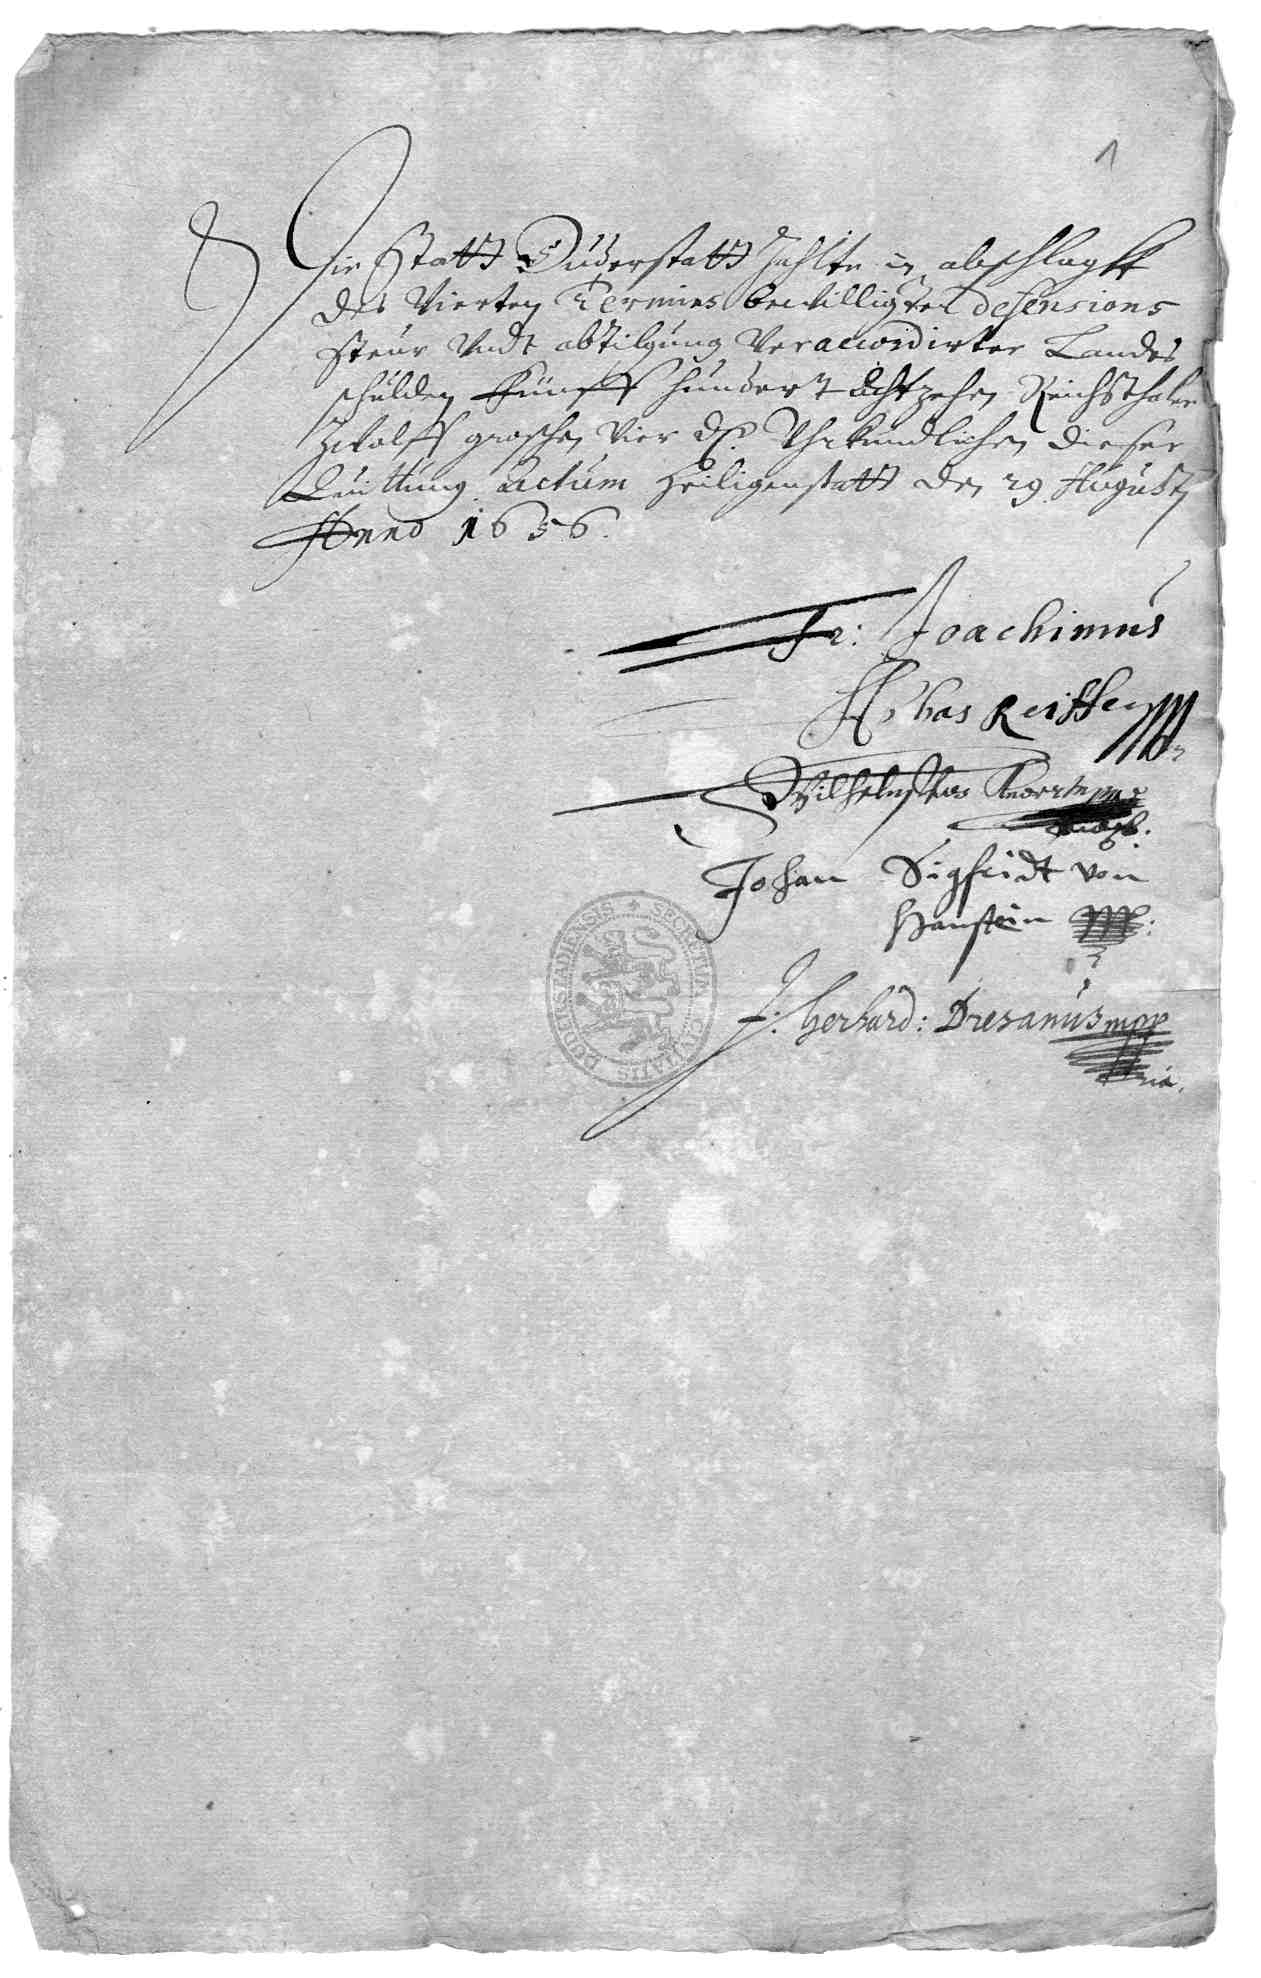 1
Die Statt Duderstatt Zahlte in abschlagk
des Vierten Termins bewilligter defensions
steur Vndt abtilgung Veraccordirter Landes
schulden Fünff hundert Achtzehen Reichsthaler
Zwölff groschen Vier d. Vhrkundlichen dieser
Quittung. Actum Heiligenstatt den 29 August
Anno 1656.
Fr: Joachimus
Abbas Reiffen
Wilhelm Knorr mpp
Johan Sigfridt von
Hanstein mp:
J: Gerhard: Dresanus mpp
SECRETUM CIVITATIS DUDERSTADIENSIS